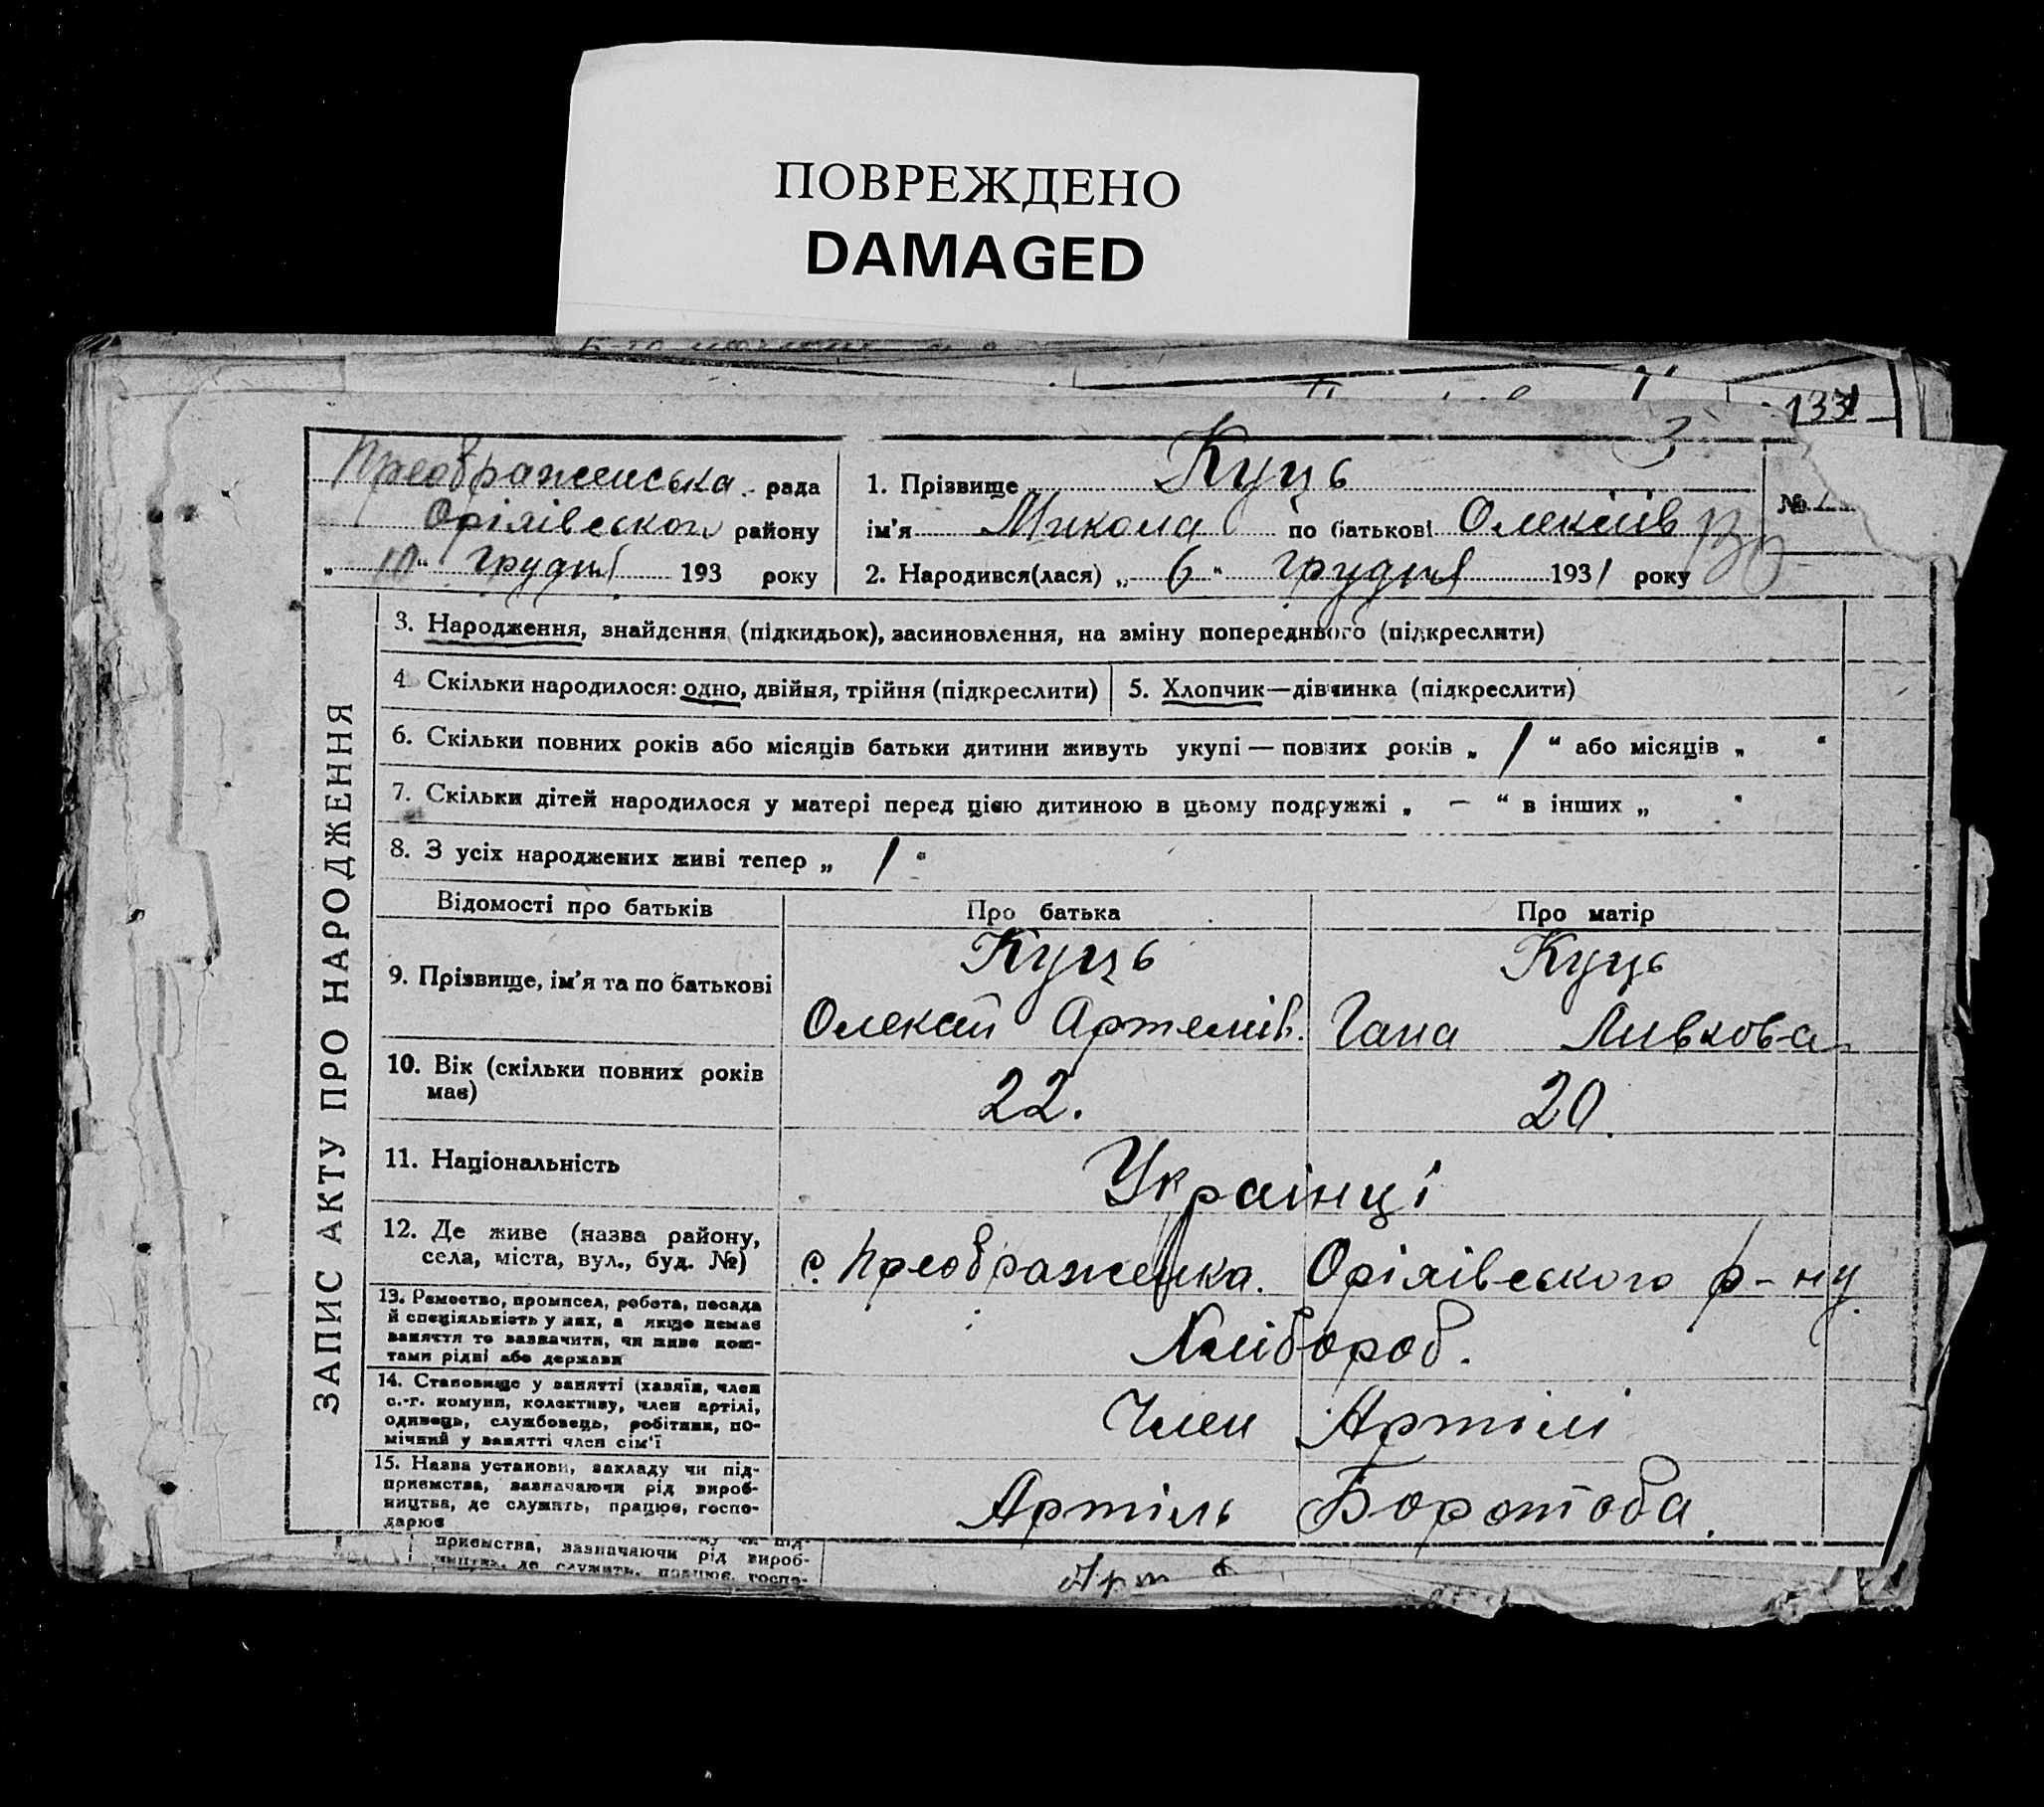 ПОВРЕЖДЕНО
DAMAGED
133
Преображенська рада
Оріхівського району
„ 10 “ Грудня 193 року
1. Прізвище Куць
ім'я Микола по батькові Олексіїв
2. Народився(лася) „ 6 “ Грудня 1931 року
№
ЗАПИС АКТУ ПРО НАРОДЖЕННЯ
3. Народження, знайдення (підкидьок), засиновлення, на зміну попереднього (підкреслити)
4. Скільки народилося: одно, двійня, трійня (підкреслити)
5. Хлопчик—дівчинка (підкреслити)
6. Скільки повних років або місяців батьки дитини живуть укупі — повних років „ 1 “ або місяців „ “
7. Скільки дітей народилося у матері перед цією дитиною в цьому подружжі „ — “ в інших „ “
8. З усіх народжених живі тепер „ 1 “
Відомості про батьків
Про батька
Про матір
9. Прізвище, ім'я та по батькові
Куць
Олексій Артемів.
Куць
Гана
10. Вік (скільки повних років
має)
22.
20.
11. Національність
Украінці
12. Де живе (назва району,
села, міста, вул., буд. №)
с. Преображенка. Оріхівського р-ну
13. Ремество, промисел, робота, посада
й спеціяльність у них, а якщо немає
заняття то зазначити, чи живе кош-
тами рідні або держави
Хлібороб.
14. Становище у занятті (хазяїн, член
с.-г. комуни, колективу, член артілі,
одинець, службовець, робітник, по-
мічний у занятті член сім'ї
Член Артілі
15. Назва установи, закладу чи під-
приємства, зазначаючи рід вироб-
ництва, де служить, працює, госпо-
дарює
Артіль Боротьба.
приємства, зазначаючи рід вироб-
ництва, де служить, працює, госпо-